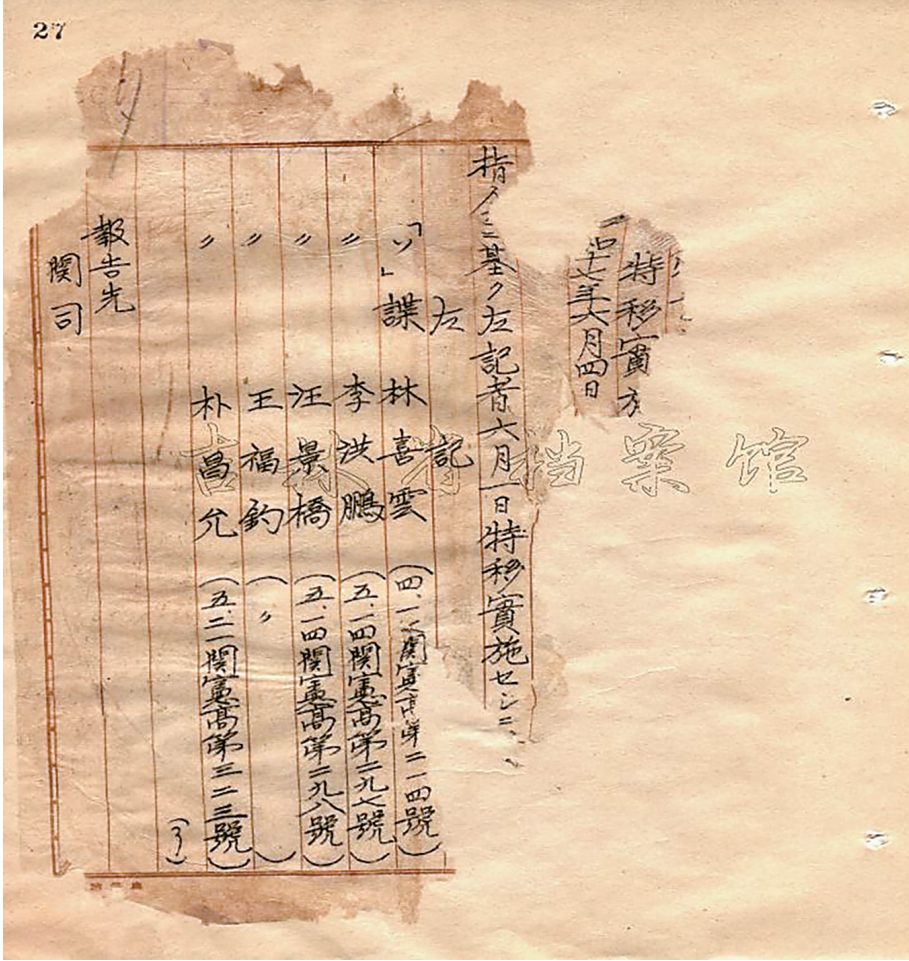 27
特移實
十七年六月四日
指令ニ基ク左記者六月一日特移實施セシニ
左記
「ソ」諜 林喜雲 (四.一 關憲高第二一四號)
〃 李洪鵬 (五.一四關憲高第二九七號)
〃 汪景橋 (五.一四關憲高第二九八號)
〃 王福釣 ( 〃 )
〃 朴昌允 (五.二一關憲高第三二三號)
(了)
報告先
関司
吉林省档案馆